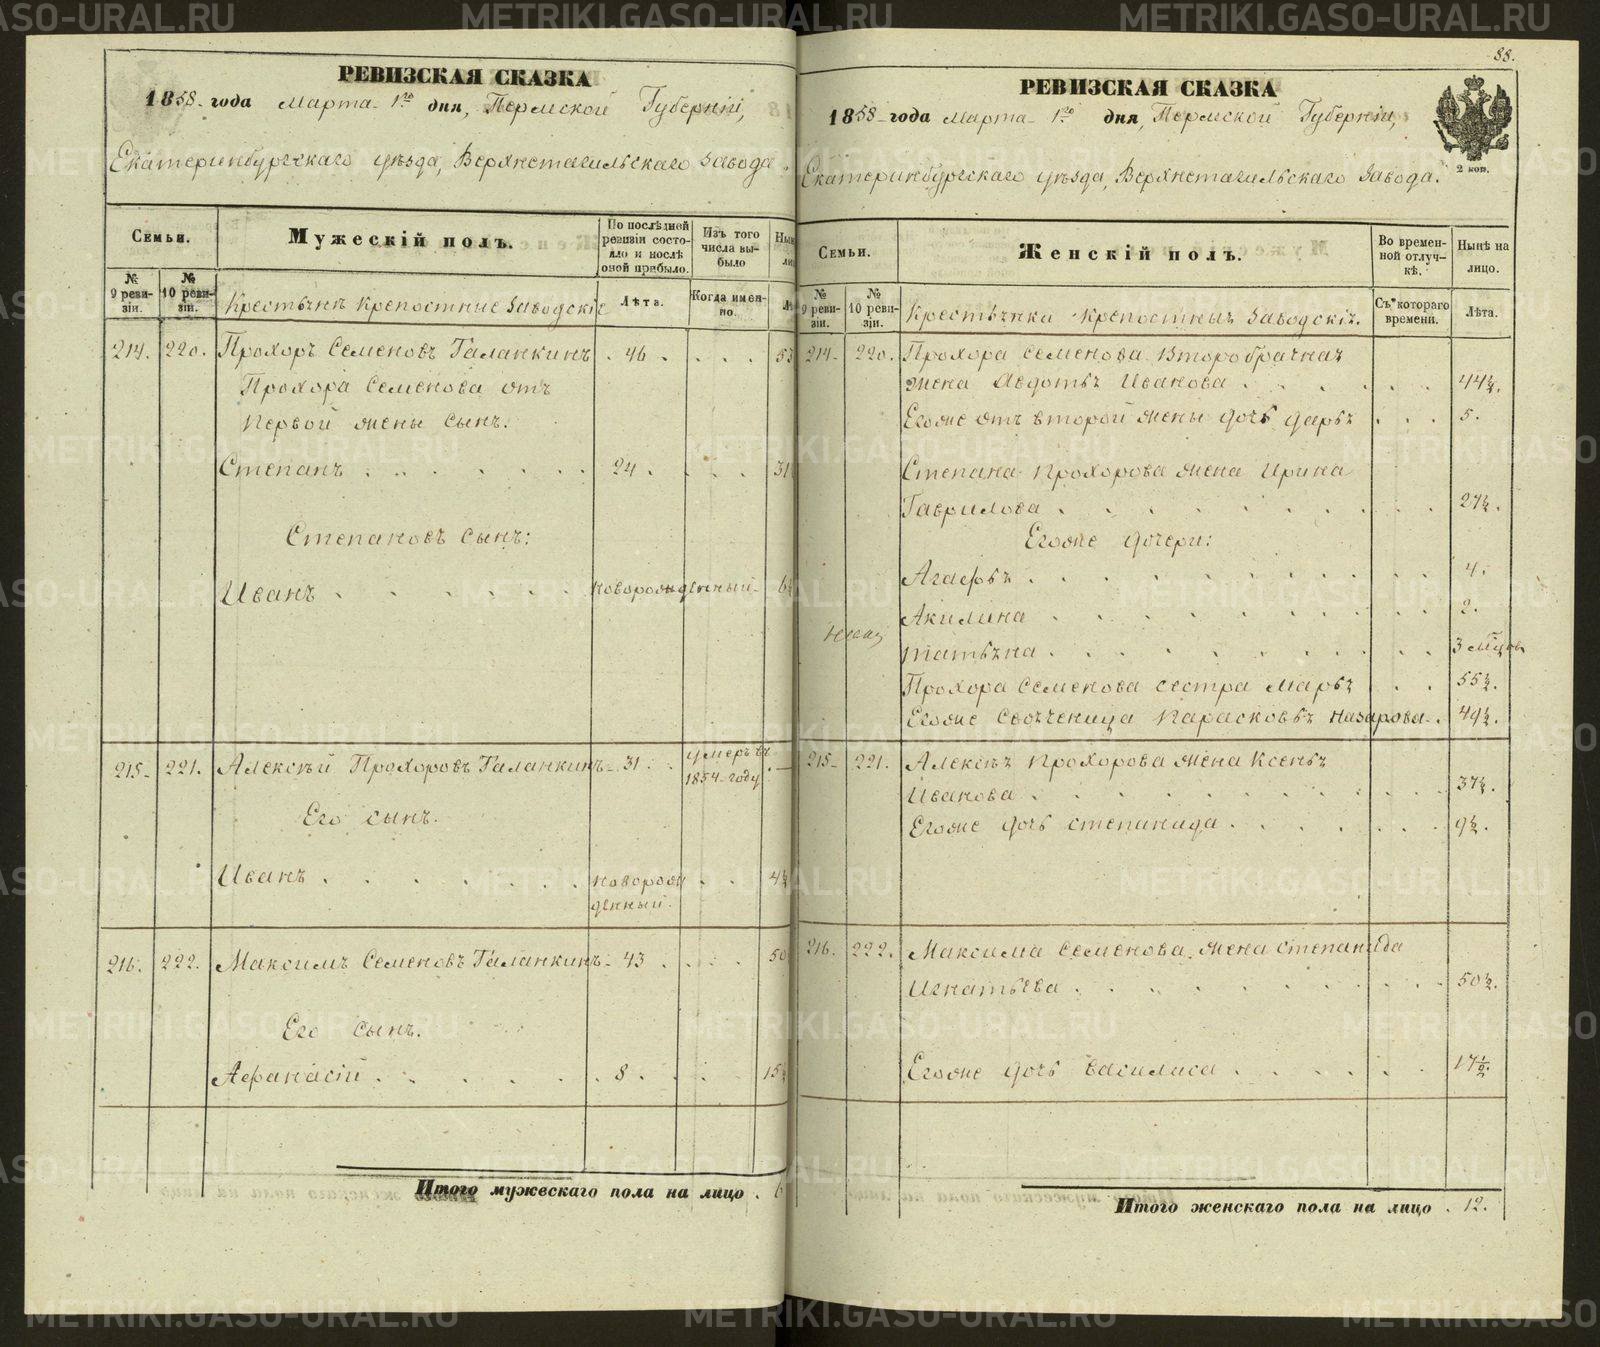 РЕВИЗСКАЯ СКАЗКА
1858 года Марта 1го дня, Пермской Губерніи,
Екатеринбургскаго уѣзда, Верхнетагильскаго Завода.
Семьи.
Мужескій полъ.
По послѣдней ревизіи состояло и послѣ оной прибыло.
Изъ того числа выбыло
№ 9 ревизіи.
№ 10 ревизіи.
Крестьяне Крепостные Заводскіе
Лѣта.
Когда именно.
214. 220. Прохоръ Семеновъ Галанкинъ 46
Прохора Семенова отъ
первой жены сынъ.
Степанъ 24.
Степановъ сынъ:
Иванъ новорожденный
215 221. Алексѣй Прохоровъ Галанкинъ 31 умеръ въ 1854 году
Его сынъ.
Иванъ новорожденный.
216. 222. Максимъ Семеновъ Галанкинъ 43 50
Его сынъ.
Афанасій 8.
Итого мужескаго пола на лицо
88.
РЕВИЗСКАЯ СКАЗКА
1858 года Марта 1го дня, Пермской Губерніи,
Екатеринбургскаго уѣзда, Верхнетагильскаго Завода.
2 коп.
Семьи.
Женскій полъ.
Во временной отлучкѣ.
Нынѣ на лицо.
№ 9 ревизіи.
№ 10 ревизіи.
Крестьянки крепостныя заводскія.
Съ котораго времени.
Лѣта.
214. 220. Прохора Семенова второбрачная
жена Авдотья Иванова 44½.
Егоже отъ второй жены дочь Дарья 5.
Степана Прохорова жена Ирина
Гаврилова 27½.
Егоже дочери:
Агафья 4.
Акилина 2.
Татьяна 3
Прохора Семенова сестра Марья 55½.
Егоже своячeница Парасковья Назарова 49½.
215 221. Алексѣя Прохорова жена Ксенья
Иванова 37½.
Егоже дочь Степанида 9½.
216. 222. Максима Семенова жена Степанида
Игнатьева 50½.
Егоже дочь Василиса 17½.
Итого женскаго пола на лицо 12.
METRIKI.GASO-URAL.RU